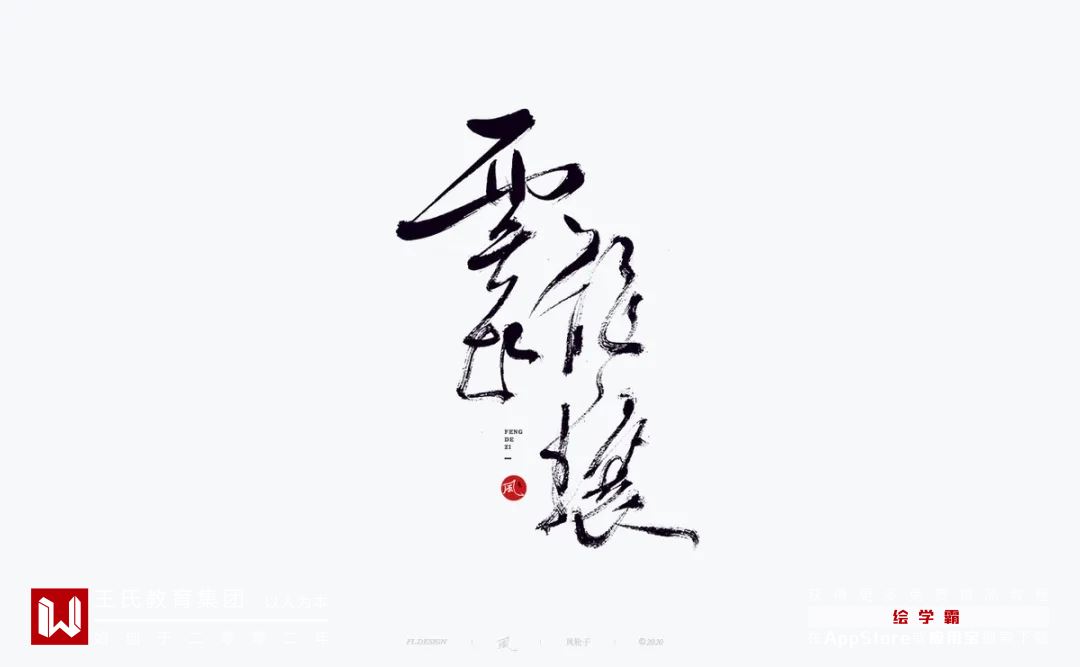 雲起
龍驤
FENG
DE
ZI
風
王氏教育集团 以人为本
始创于二零零二年
FLDESIGN 風 ©2020
获得更多免费精品教程
绘学霸
在AppStore或应用宝搜索下载